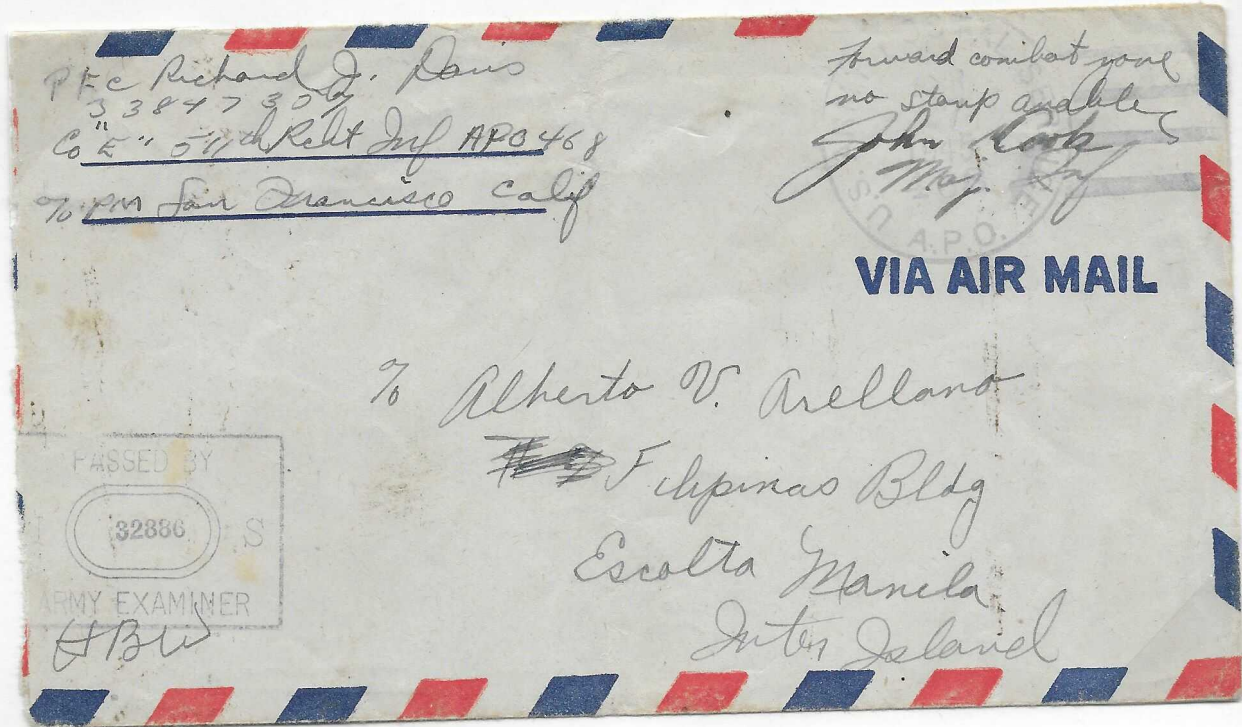 PFC Richard J. Davis
Co "E" 511th Reht Inf APO 468
℅ PM San Francisco Calif
Forward combat zone
no stamp available
John Cook
Maj. Inf
U.S. A.P.O.
VIA AIR MAIL
℅ Alberto V. Arellano
Filipinas Bldg
Escolta Manila
Inter Island
PASSED BY
32886 S
ARMY EXAMINER
HBW